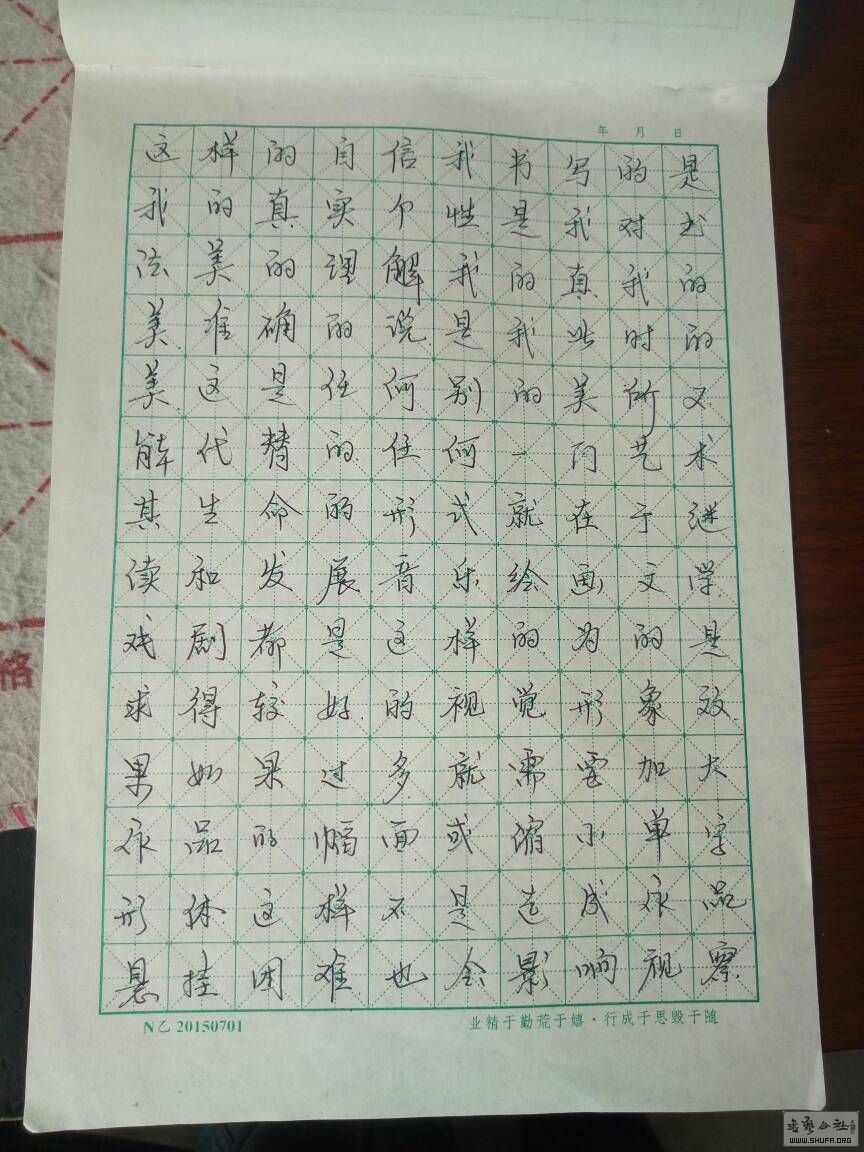 年 月 日
这样的自信我书写的是
我的真实个性是我对书
法美的理解我的真我的
美准确的说是我此时的
美这是任何别的美所不
能代替的任何一门艺术
其生命的形式就在于继
续和发展音乐绘画文学
戏剧都是这样的为的是
求得较好的视觉形象效
果如果过多就需要加大
作品的幅面或缩小单字
形体这样不是造成作品
悬挂困难也会影响视察
N乙 20150701
业精于勤荒于嬉·行成于思毁于随
书艺公社
WWW.SHUFA.ORG